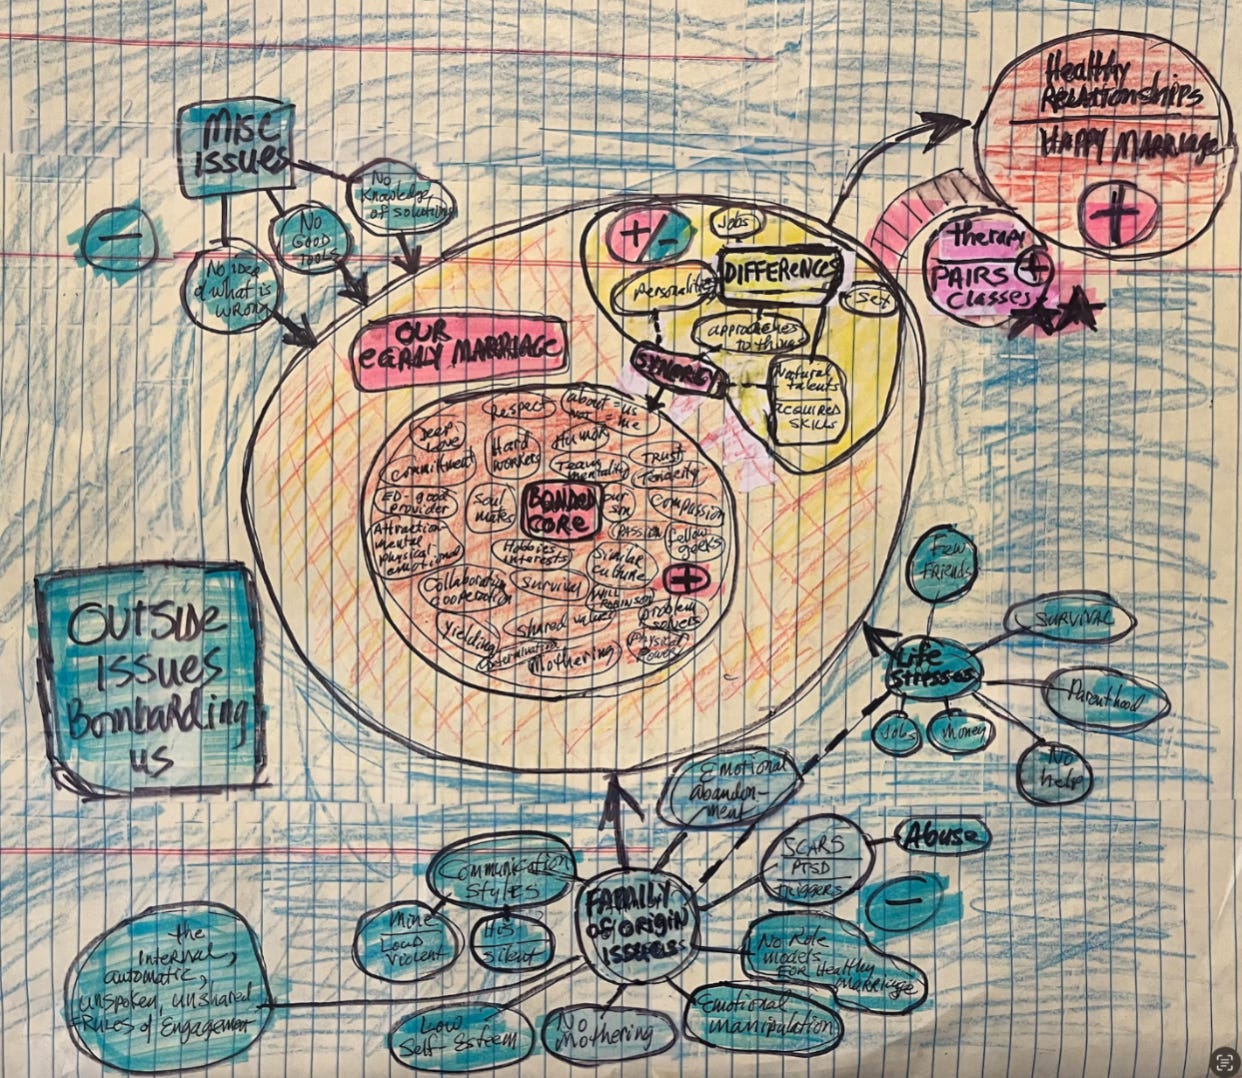 Healthy
RELATIONSHIPS
HAPPY MARRIAGE
+
MISC
ISSUES
No
Knowledge
of solutions
No
GOOD
TOOLS
No idea
of what is
WRONG
−
+/-
Jobs
DIFFERENCES
Personalities
Sex
approaches
to things
SYNERGY
Natural
talents
ACQUIRED
SKILLS
therapy
+
PAIRS
Classes
OUR
EARLY MARRIAGE
Respect
about = us
not = me
Deep
Love
Hard
workers
Humor
Commitment
Team
mentality
TRUST
Tenacity
ED-good
provider
Soul
mates
BONDED
CORE
our
son
Compassion
Attraction
mental
physical
emotional
PASSION
fellow
geeks
Hobbies
interests
Similar
Culture
+
Collaboration
cooperation
Survival
WILL
ROBINSON
Problem
solvers
Yielding
Shared values
Physical
Powers
Determination
Mothering
OUTSIDE
ISSUES
Bombarding
us
Few
Friends
SURVIVAL
Life
Stresses
Parenthood
Jobs
Money
No
help
Emotional
abandon-
ment
SCARS
PTSD
triggers
Abuse
−
Communication
Styles
Mine
Loud
Violent
His
Silent
FAMILY
OF ORIGIN
ISSUES
No Role
models
FOR Healthy
Marriage
the
internal,
automatic,
unspoken, unshared
RULES of Engagement
Low
Self-Esteem
No
Mothering
Emotional
manipulation